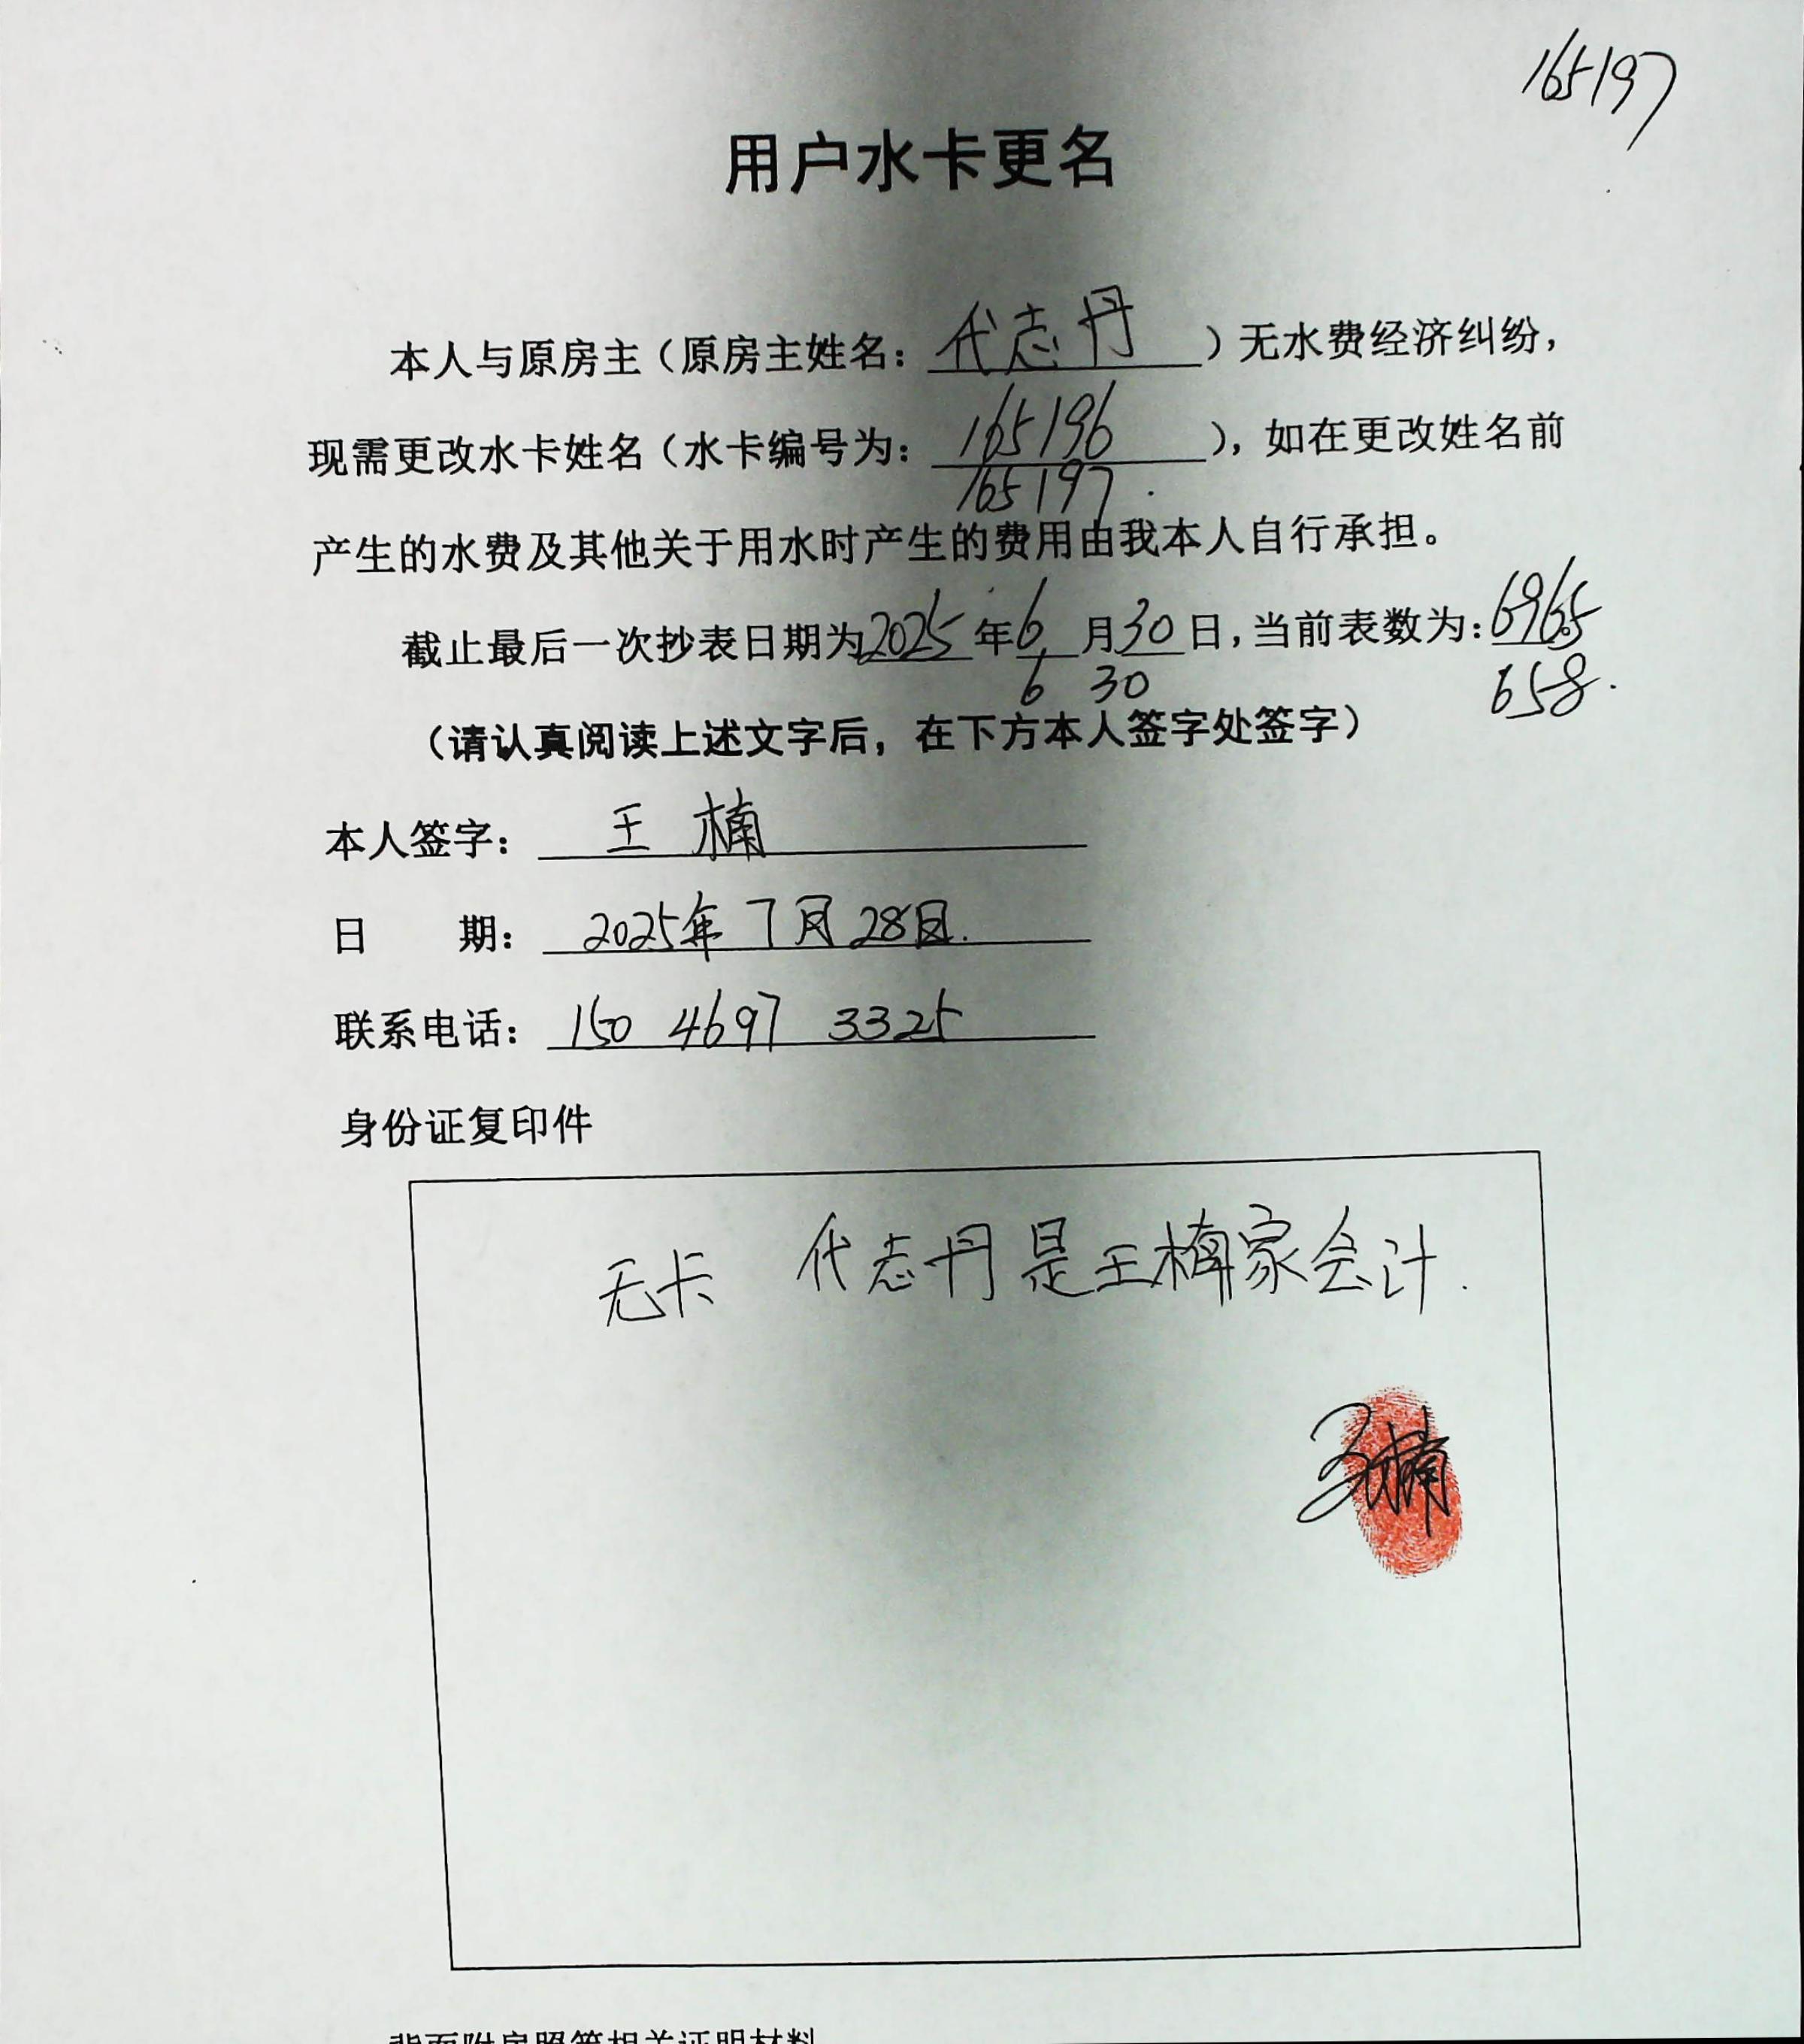 165197
用户水卡更名
本人与原房主（原房主姓名：代志丹）无水费经济纠纷，
现需更改水卡姓名（水卡编号为：165196），如在更改姓名前
165197.
产生的水费及其他关于用水时产生的费用由我本人自行承担。
截止最后一次抄表日期为2025年6月30日，当前表数为：6965
6 30 658.
（请认真阅读上述文字后，在下方本人签字处签字）
本人签字：王楠
日 期：2025年7月28日.
联系电话：150 4697 3325
身份证复印件
无卡 代志丹是王楠家会计.
王楠
背面附房照等相关证明材料